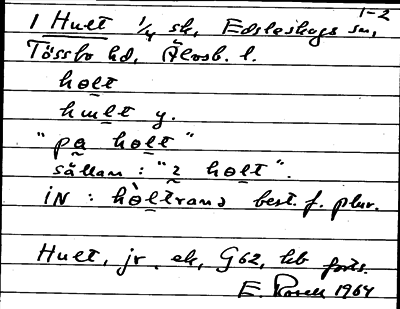 1-2
1 Hult 1/4 sk, Edsleskogs sn,
Tössbo hd, Älvsb. l.
hɷlt
hɯlt y.
"på hɷlt"
sällan: "i hɷlt".
iN: hɷ̀ltrana best. f. plur.
Hult, jr. ek, G62, kb forts.
E. Rosell 1964